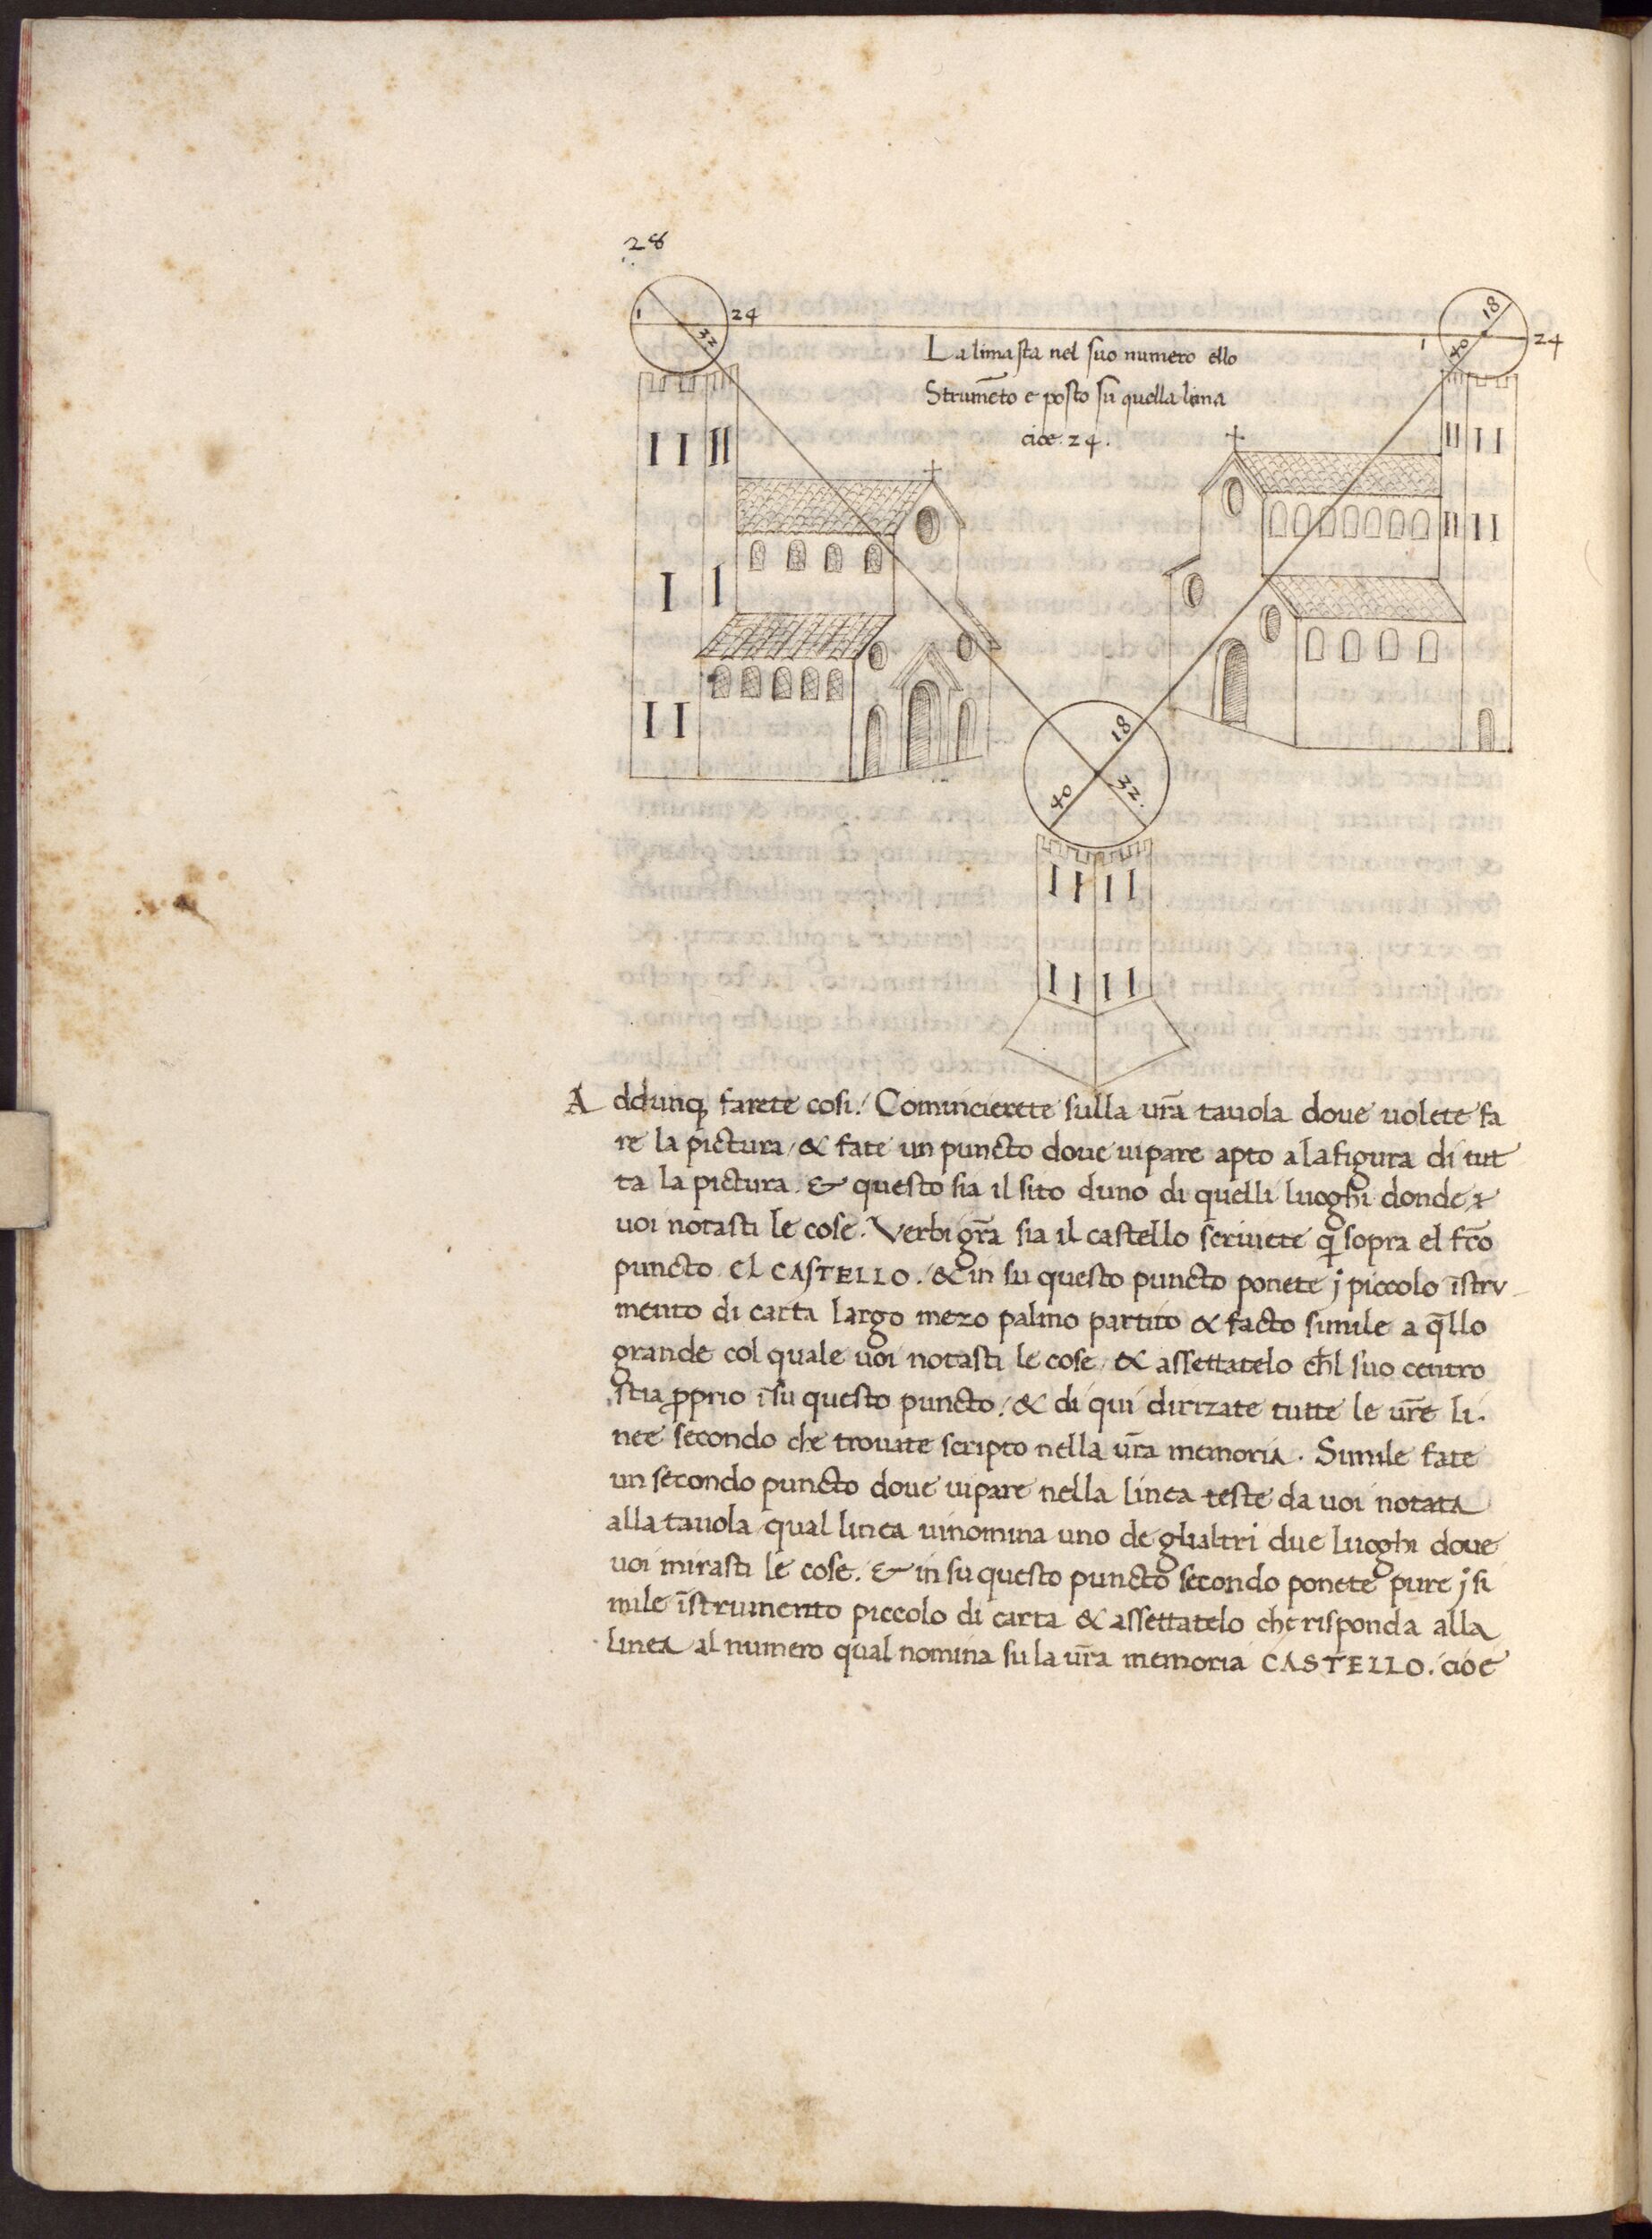 28
1 24 32
18 1 24 40
La linia sta nel suo numero ello
Strum̄eto e posto su quella linia
cioe. 24.
18
40 32.
Addunq farete cosi. / Comincierete sulla ur̄a tauola doue uolete fa
re la pictura / & fate un puncto doue uipare apto a la figura di tut
ta la pictura. & questo sia il sito duno di quelli luoghi donde
uoi notasti le cose. Verbi gr̄a sia il castello scriuete q̄ sopra el fc̄o
puncto. el CASTELLO. / & in su questo puncto ponete j piccolo īstru
mento di carta largo mezo palmo partito & facto simile a q̄llo
grande col quale uoi notasti le cose / & assettatelo ch̄l suo centro
stia pprio ī su questo puncto. / & di qui dirizate tutte le ur̄e li.
nee secondo che trouate scripto nella ur̄a memoria. Simile fate
un secondo puncto doue uipare nella linea teste da uoi notata
alla tauola / qual linea uinomina uno de glialtri due luoghi doue
uoi mirasti le cose. & in su questo puncto secondo ponete pure j si
mile īstrumento piccolo di carta & assettatelo che risponda alla
linea al numero qual nomina su la ur̄a memoria CASTELLO. cioe